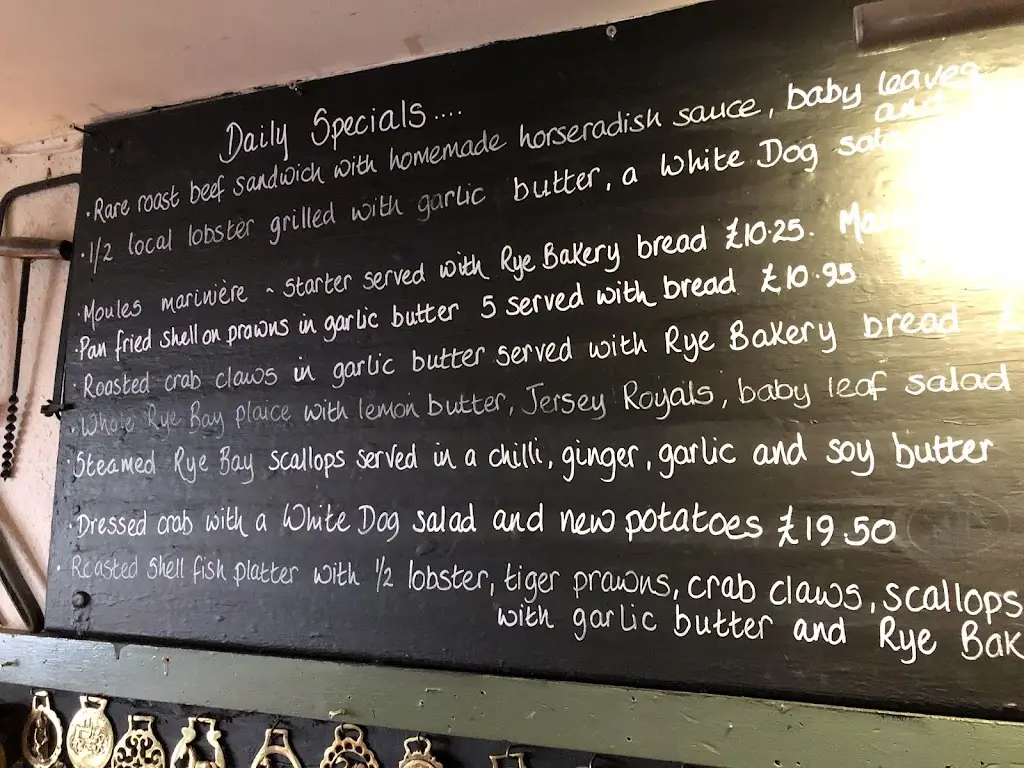 Daily Specials....
·Rare roast beef sandwich with homemade horseradish sauce, baby leaves
and
·1/2 local lobster grilled with garlic butter, a White Dog
·Moules marinière ~ Starter served with Rye Bakery bread £10.25.
·Pan fried shell on prawns in garlic butter 5 served with bread £10.95
·Roasted crab claws in garlic butter served with Rye Bakery bread
·Whole Rye Bay plaice with lemon butter, Jersey Royals, baby leaf salad
·Steamed Rye Bay scallops served in a chilli, ginger, garlic and soy butter
·Dressed crab with a White Dog salad and new potatoes £19.50
·Roasted Shell fish platter with 1/2 lobster, tiger prawns, crab claws, scallops
with garlic butter and Rye Bak